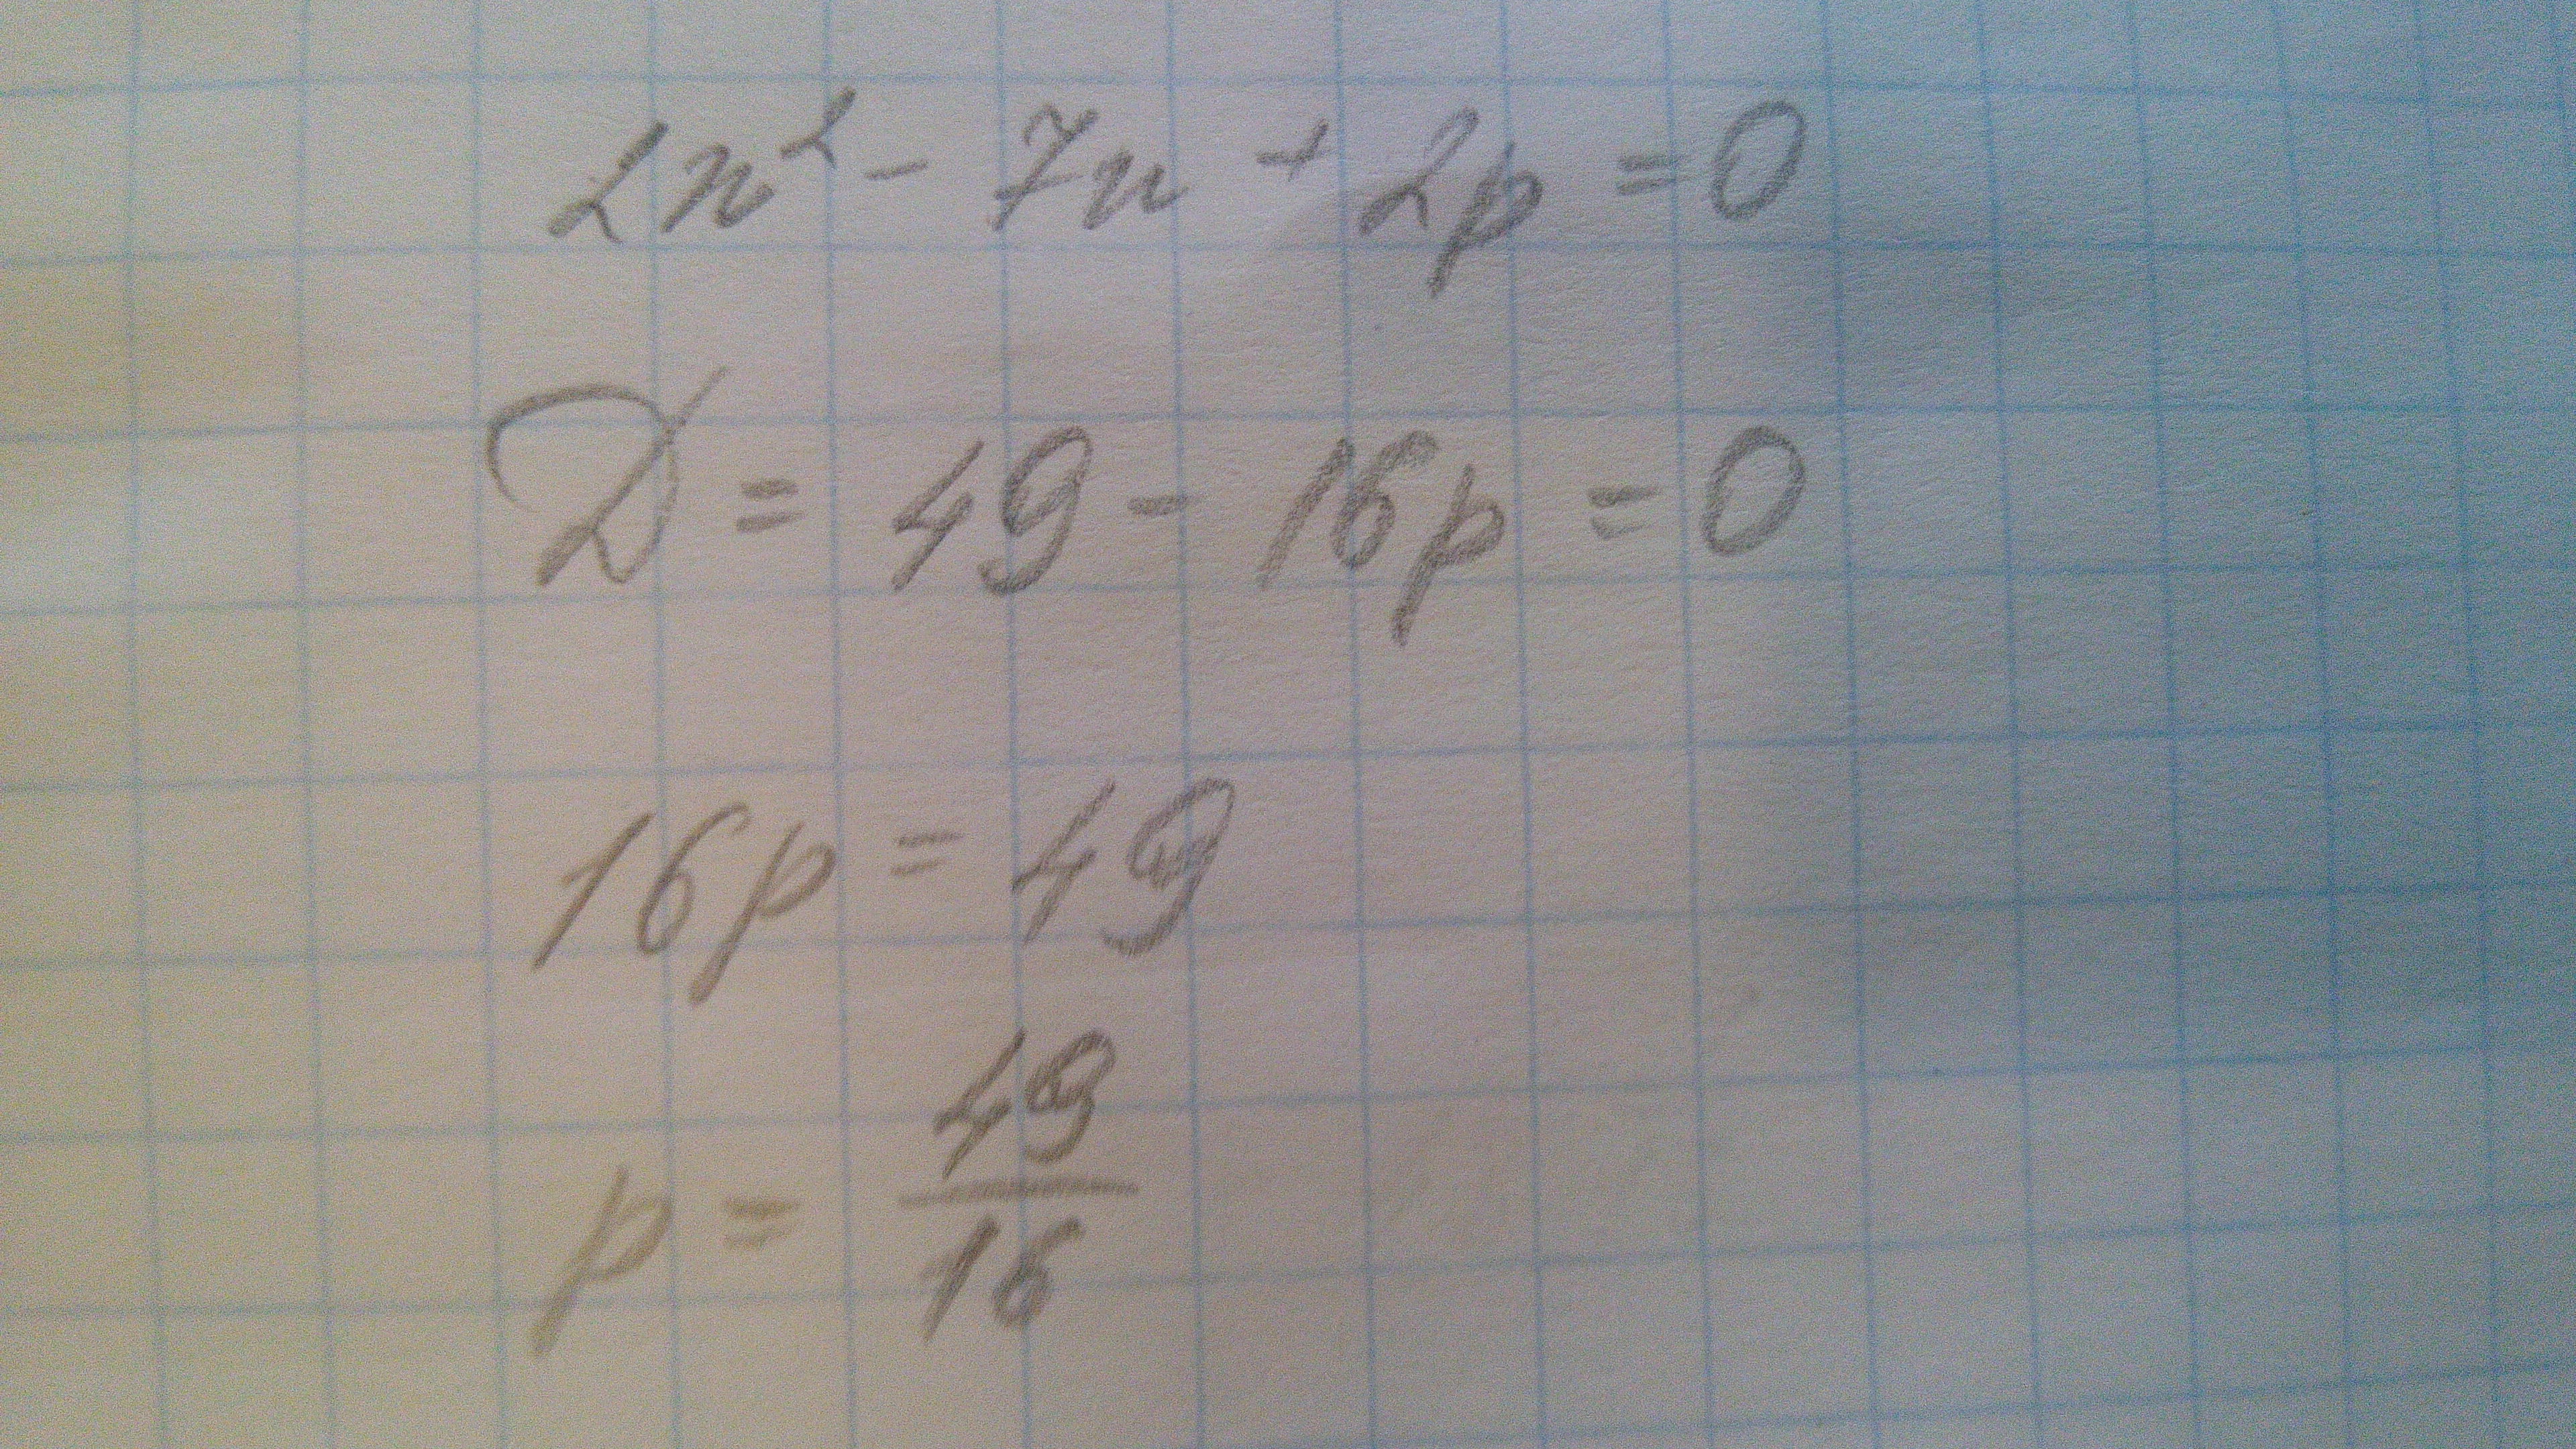 2n² - 7n + 2p = 0
D = 49 - 16p = 0
16p = 49
p = 49/16